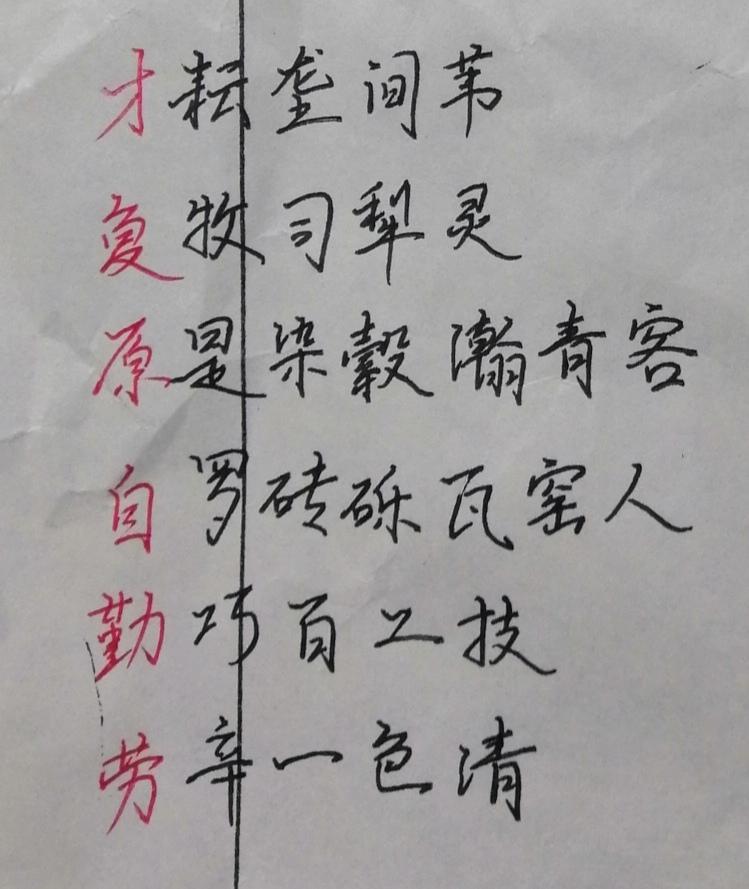 才耘垄间苇
复牧司犁灵
原是染毂瀚青客
自罗砖砾瓦窑人
勤巧百工技
劳辛一色清